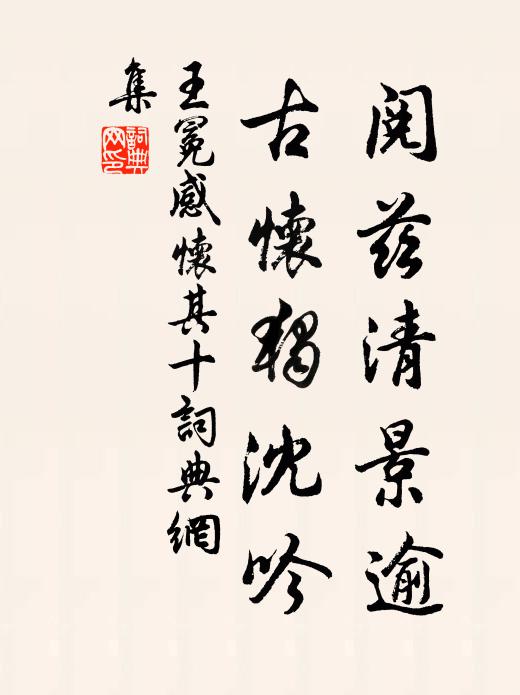 閱茲清景逾
古懷獨沈吟
王冕感懷其十詞典網
集
詞典網印